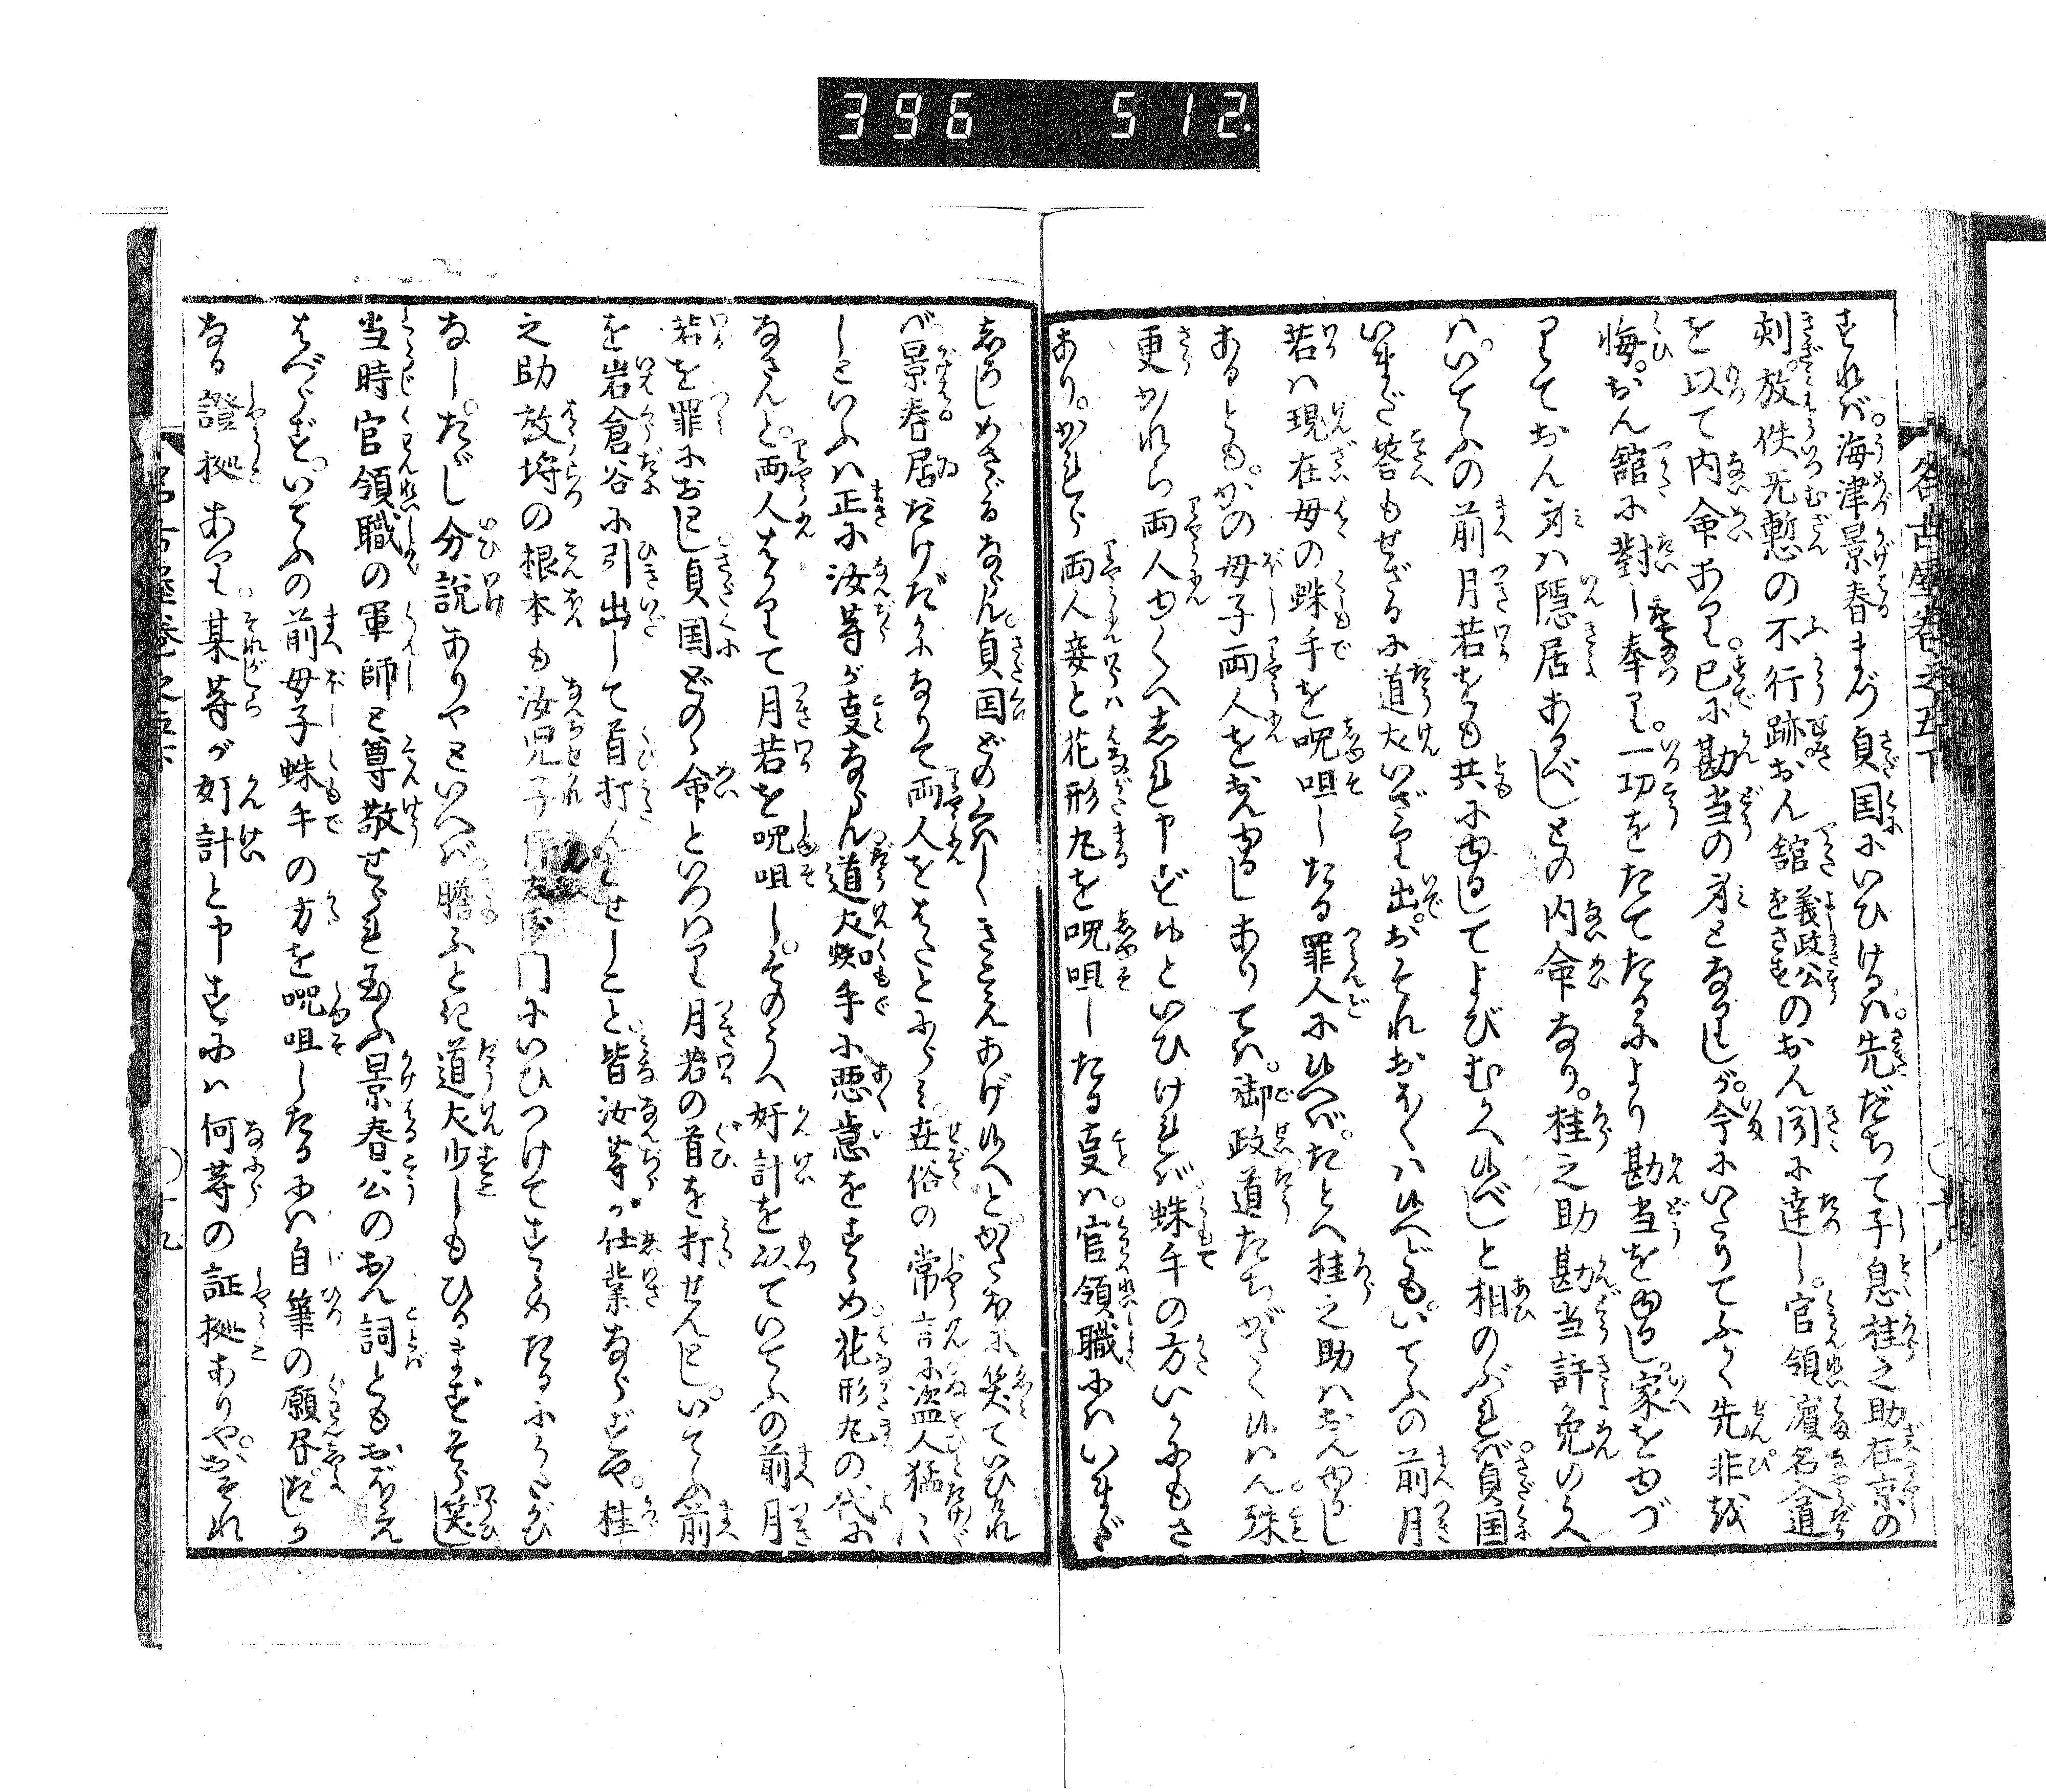 396 512
名古屋巻之五下
すれば。海津景春まづ貞国にいひけるは。先だちて子息桂之助在京の
刻。放佚无慙の不行跡おん館義政公のおん聞に達し。官領濱名入道
を以て内命あり。已に勘当の身となりしが。今にいたりてふかく先非を
悔。おん館に對し奉り。一功をたてたるにより勘当をゆるし。家をゆづ
りておん身は隠居あるべしとの内命なり。桂之助勘当許免のうへ
は。いてふの前月若をも共にゆるしてよびむかへ候べしと相のぶれば。貞国
いまだ答もせざるに道犬いざり出。おそれおほくは候へども。いてふの前月
若は現在母の蛛手を呪咀したる罪人に候へば。たとへ桂之助はおんゆるし
あるとも。かの母子両人をおんゆるしありては。御政道たちがたく候はん殊
更かれら両人ゆくへしれ申さずゆといひければ。蛛手の方いかにもさ
あり。かれら両人妾と花形丸を呪咀したる叓は。官領職にはいまだ
しろしめさゞるならん。貞国どのくはしくきこえあげ候へと。かたほに笑ていひければ
景春居たけだかになりて両人をはたとにらみ。世俗の常言に盗人猛に
しといふは正に汝等が叓ならん道犬蛛手に悪意をすゝめ。花形丸の代に
なさんと。両人はかりて月若を呪咀し。そのうへ奸計を以ていてふの前月
若を罪におとし。貞国どのゝ命といつはり月若の首を打せんとし。いてふ前
を岩倉谷に引出して首打んとせしこと皆汝等が仕業ならずや。桂
之助放埓の根本も汝児子伴左衛門にいひつけてすゝめたるにうたがひ
なし。たゞし分説ありやといへば。膽ふとき道犬少しもひるまずそら笑し
当時官領職の軍師と尊敬せられ玉ふ景春公のおん詞ともおぼえ
はべらず。いてふの前母子蛛手の方を呪咀したるには自筆の願書たしか
なる證拠あり某等が奸計と申すには何等の証拠ありや。おそれ
名古屋巻之五下
〇十九